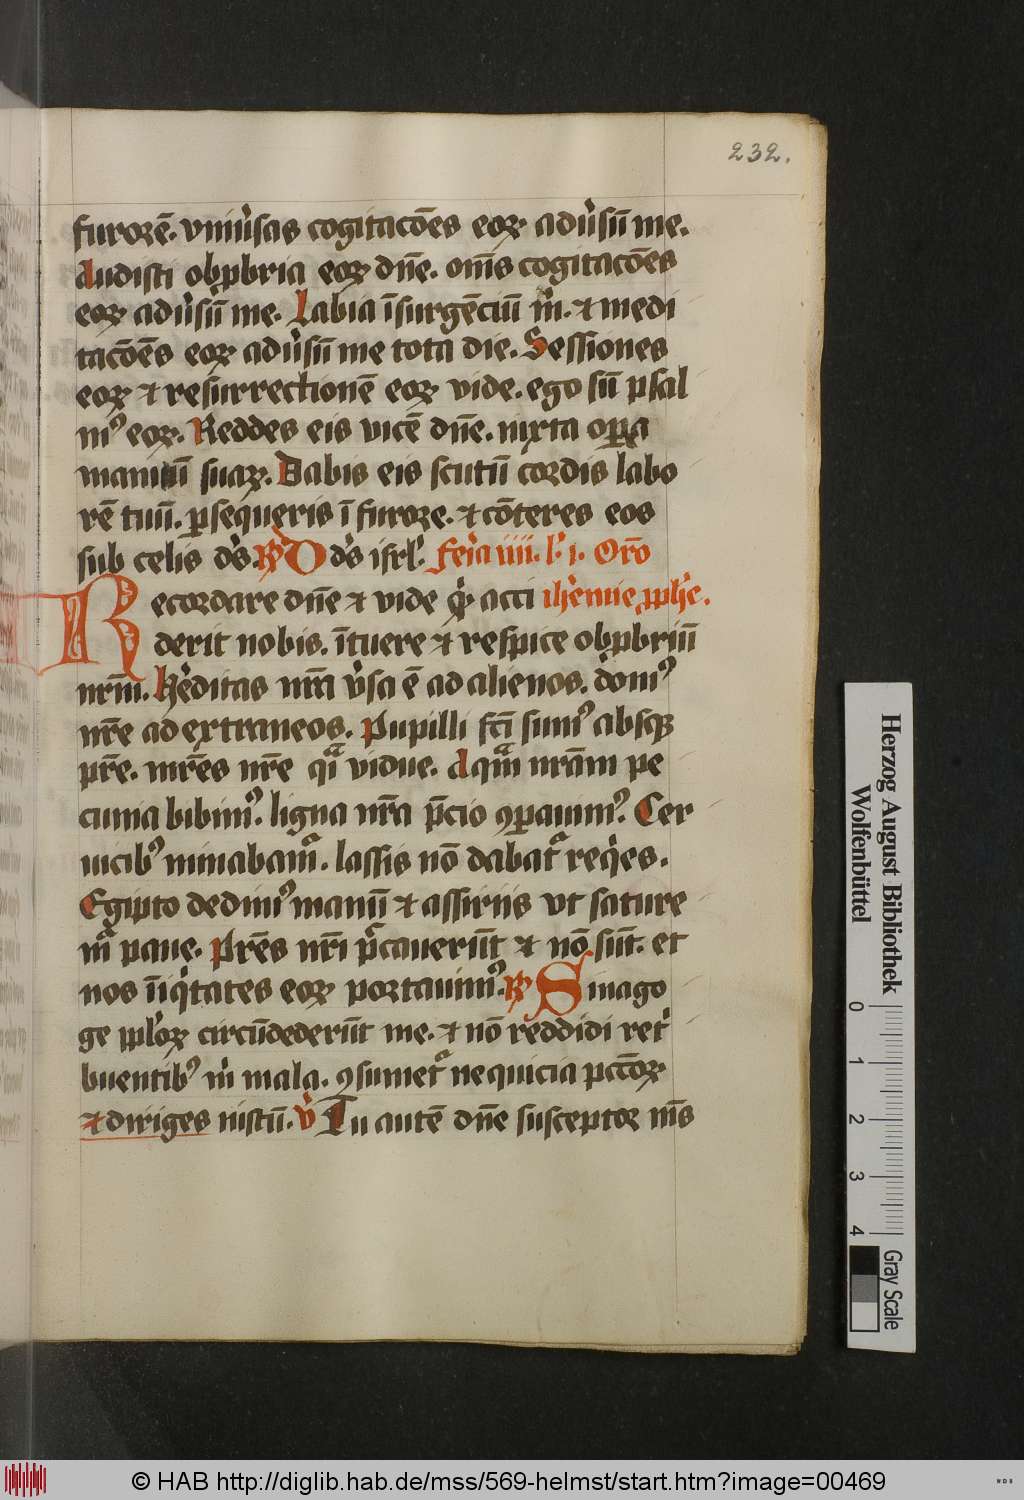 232.
furorē. vniu̾sas cogitacōes eoꝝ adu̾sū me.
Audisti obꝓbria eoꝝ dn̄e. om̄s cogitacōes
eoꝝ adu̾sū me. Labia īsurgēciū m̊. ⁊ medi
tacōēs eoꝝ adu̾sū me tota die. Sessiones
eoꝝ ⁊ resurrectionē eoꝝ vide. ego sū psal
mꝰ eoꝝ. Reddes eis vicē dn̄e. iuxta oꝑa
manuū suaꝝ. Dabis eis scutū cordis labo
rē tuū. ꝑsequeris ī furore. ⁊ cōteres eos
sub celis dn̄s. ℟ O dn̄s isrl̄. feria iiii. l. i. Oro
Recordare dn̄e ⁊ vide qͥ acci iheremie ꝓphe.
derit nobis. ītuere ⁊ respice obꝓbriū
nrm̄. Hereditas nrā v̾sa ē ad alienos. domꝰ
nrē ad extraneos. Pupilli fcī sumꝰ absqꝫ
pr̄e. mrēs nrē qͣi vidue. Aqͣm nrām pe
cunia bibimꝰ. ligna nrā p̄cio ꝯꝑauimꝰ. Cer
uicibꝰ minabamᷣ. lassis nō dabatᷣ reqͥes.
Egipto dedimꝰ manū ⁊ assiriis vt sature
mᷣ pane. Prēs nrī p̄cauerūt ⁊ nō sūt. et
nos īiqͥtates eoꝝ portauimꝰ. ℟ Sinago
ge pploꝝ circūdederūt me. ⁊ nō reddidi ret̾
buentibꝰ m̊ mala. ꝯsumetᷣ nequicia pccōꝝ
⁊ diriges iustū. ℣ Tu autē dn̄e susceptor m̄s
Herzog August Bibliothek
Wolfenbüttel
0 1 2 3 4
Gray Scale
© HAB http://diglib.hab.de/mss/569-helmst/start.htm?image=00469